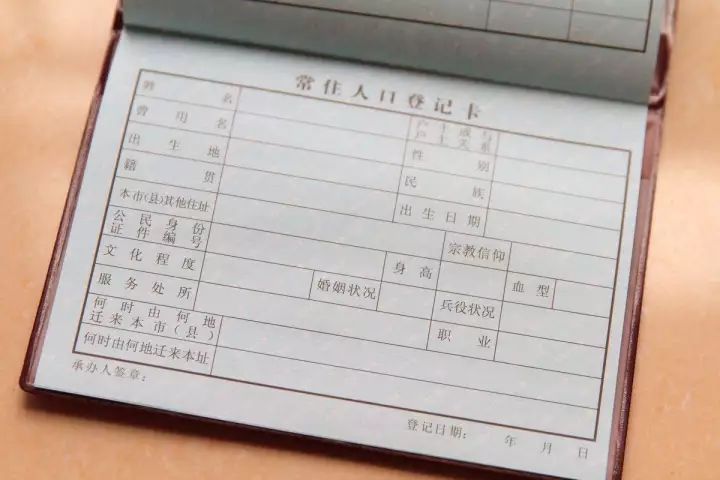 常住人口登记卡
姓名
户主或与
户主关系
曾用名
性别
出生地
民族
籍贯
出生日期
本市(县)其他住址
宗教信仰
公民身份
证件编号
身高
血型
文化程度
婚姻状况
兵役状况
服务处所
职业
何时由何地
迁来本市(县)
何时由何地迁来本址
承办人签章:
登记日期: 年 月 日